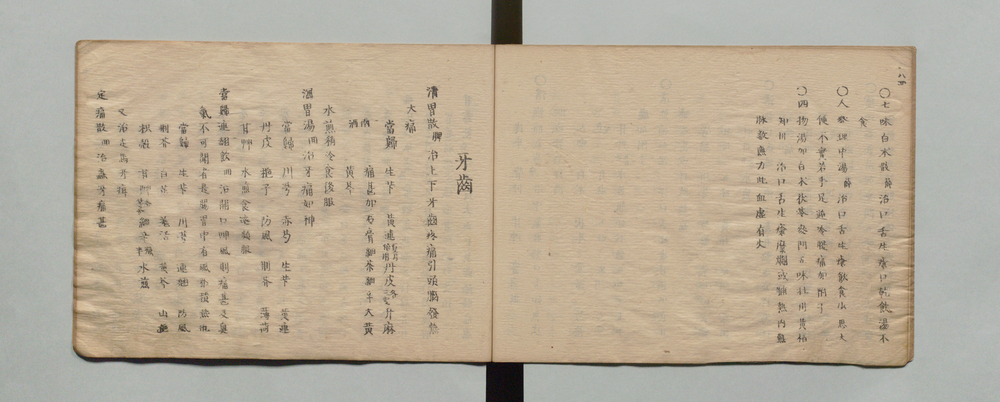 〇七味白朮散 治口舌生瘡口乾飲湯不
食
〇人參理中湯 治口舌生瘡飲食少思大
便不實若手足逆冷腹痛加附子
〇四物湯加白朮茯苓麥門五味牡丹黃柏
治口舌生瘡糜爛或脯熱內熱
脉數無力此血虛有火
牙齒
清胃散 治上下牙齒疼痛引頭腦發熱
大痛
當歸 生芐 黃連 丹皮 升麻
痛甚加石膏細茶細辛大黃
黃芩
水煎稍冷食後服
瀉胃湯 治牙痛如神
當歸 川芎 赤芍 生芐 黃連
丹皮 梔子 防風 荊芥 薄荷
甘艸 水煎食遠頓服
當歸連翹飲 治開口呷風則痛甚及臭
氣不可聞者是腸胃中有風邪積熱也
當歸 生芐 川芎 連翹 防風
荊芥 白芷 羌活 黃芩 山梔
枳殼 甘艸 細辛 水煎
定痛散 治蟲牙痛甚